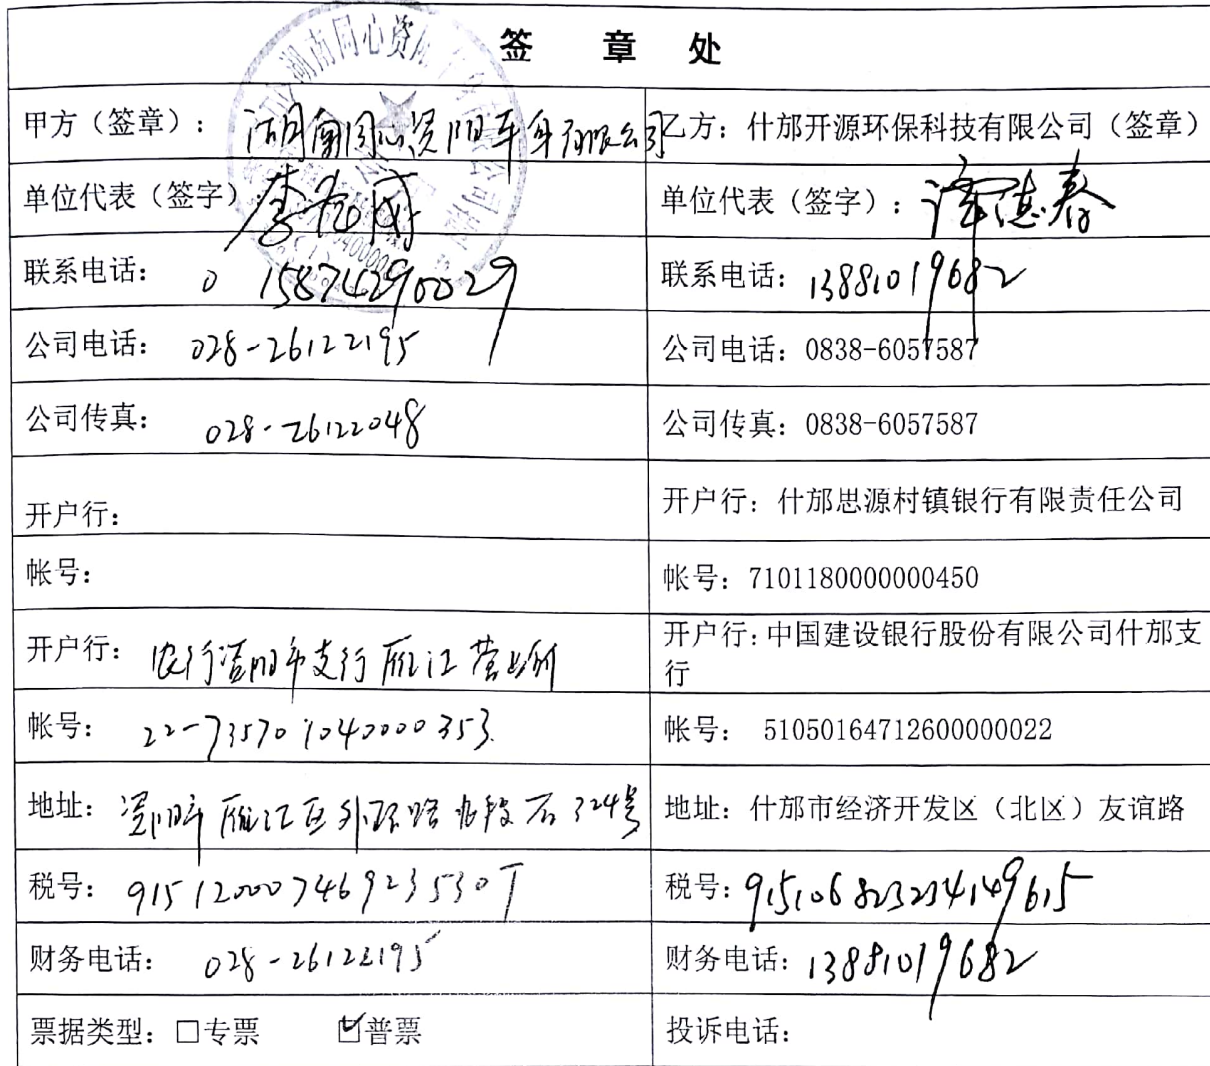 签 章 处
甲方（签章）： 湖南同心资阳车身有限公司
乙方：什邡开源环保科技有限公司（签章）
单位代表（签字） 李
单位代表（签字）： 德春
联系电话： 0 15874290029
联系电话： 13881019682
公司电话： 028-26122195
公司电话：0838-6057587
公司传真： 028-26122048
公司传真：0838-6057587
开户行：
开户行：什邡思源村镇银行有限责任公司
帐号：
帐号：7101180000000450
开户行： 农行资阳市支行雁江营业所
开户行:中国建设银行股份有限公司什邡支
行
帐号： 22-735701040000353
帐号： 51050164712600000022
地址： 资阳市雁江区外环路 段 324号
地址：什邡市经济开发区（北区）友谊路
税号： 91512000746923530T
税号：915106823234149615
财务电话： 028-26122195
财务电话：13881019682
票据类型：□专票 ☑普票
投诉电话：